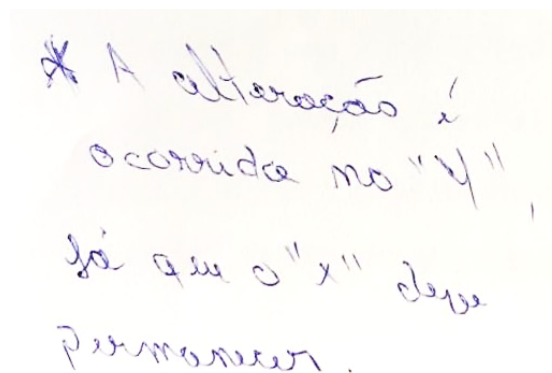 * A alteração é
ocorrida no "y",
já que o "x" deve
permanecer.